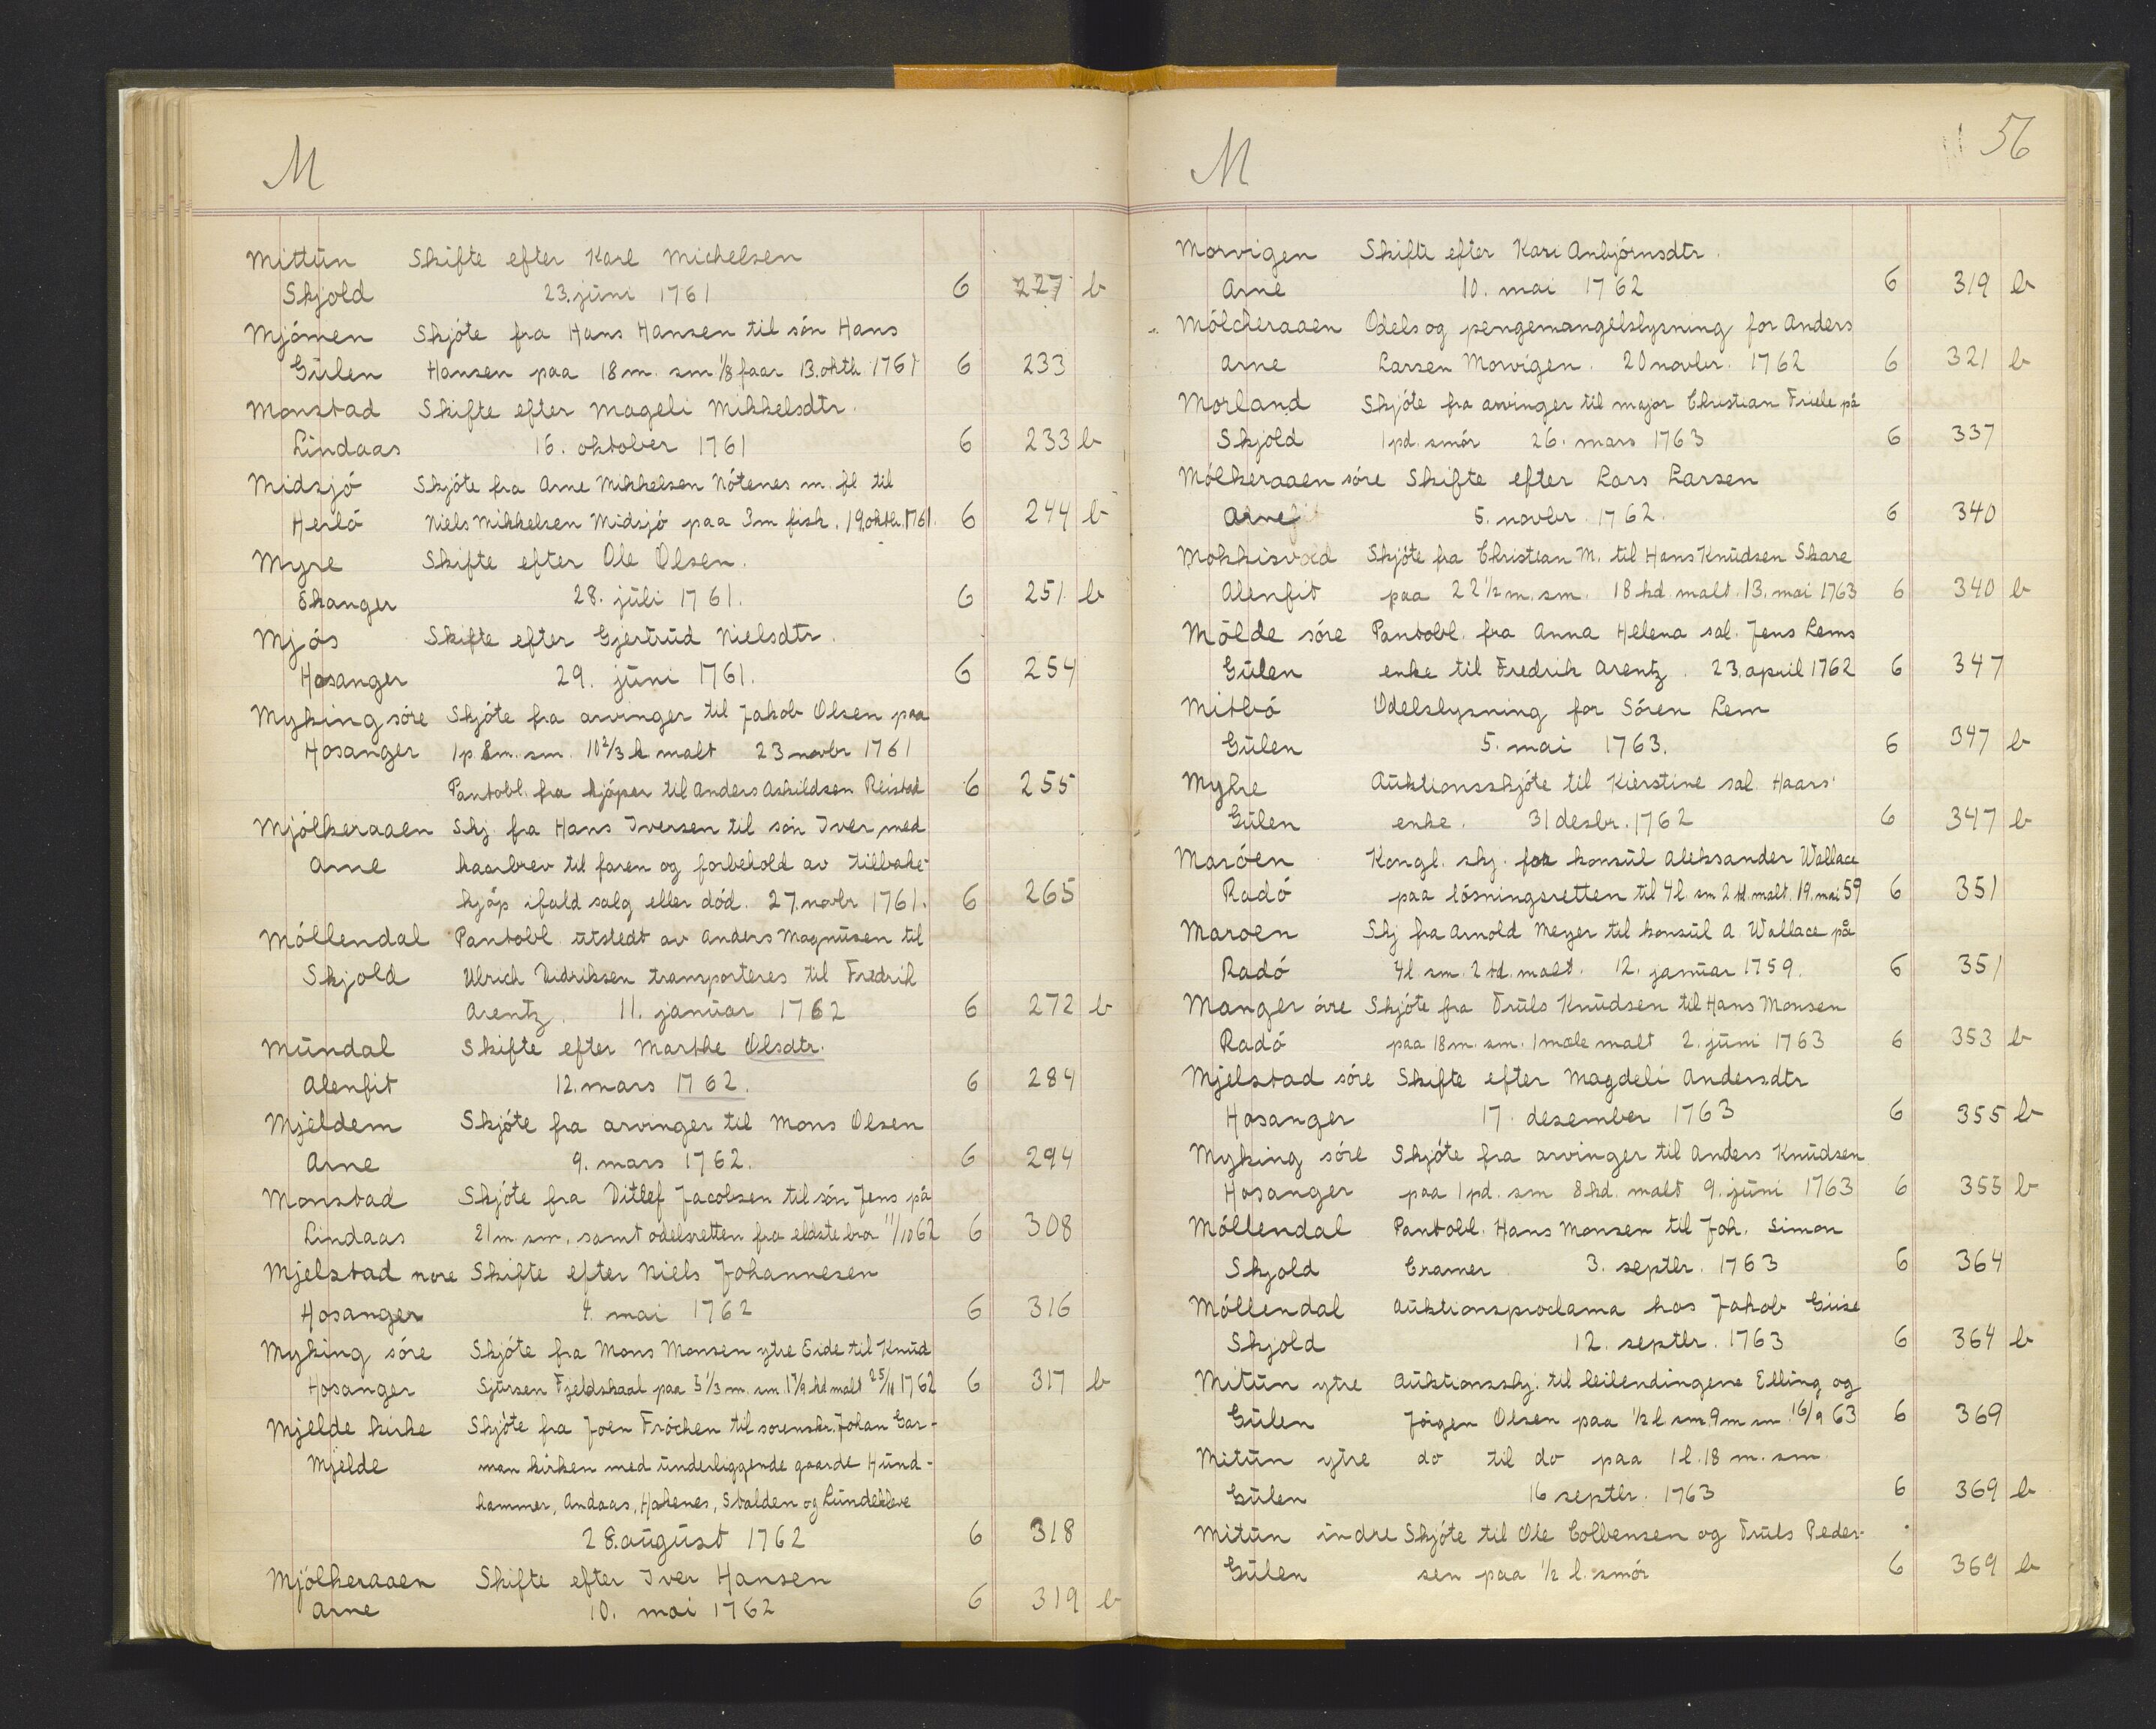 M
Mittún Skifte efter Karl Michelsen
Skjold 23. júni 1761 6 227 b
Mjómen Skjóte fra Hans Hansen til són Hans
Gúlen Hansen paa 18 m. sm 1/8 faar 13. oktb. 1761 6 233
Monstad Skifte efter Mageli Mikkelsdtr.
Lindaas 16. oktober 1761 6 233 b
Midsjó Skjóte fra Arne Mikkelsen Nótenes m. fl til
Herló Niels Mikkelsen Midsjó paa 3 m fisk. 19. oktb. 1761. 6 244 b
Myre Skifte efter Ole Olsen.
Ekanger 28. júli 1761. 6 251 b
Mjós Skifte efter Gjertrúd Nielsdtr.
Hosanger 29. júni 1761. 6 254
Myking sóre Skjóte fra arvinger til Jakob Olsen paa
Hosanger 1 p 8 m. sm. 10 2/3 k malt 23 novbr 1761
Pantobl. fra kjóper til Anders Askildsen Reistad 6 255
Mjólkeraaen Skj. fra Hans Iversen til són Iver med
Arne kaarbrev til faren og forbehold av tilbake-
kjóp ifald salg eller dód. 27. novbr 1761. 6 265
Móllendal Pantobl. útstedt av Anders Magnúsen til
Skjold Ulrich Didriksen transporteres til Fredrik
Arentz. 11. janúar 1762 6 272 b
Múndal Skifte efter Marthe Olsdtr.
Alenfit 12. mars 1762. 6 284
Mjeldem Skjóte fra arvinger til Mons Olsen
Arne 9. mars 1762. 6 294
Monstad Skjóte fra Ditlef Jacobsen til són Jens på
Lindaas 21 m. sm. samt odelsretten fra eldste bror 11/10 62 6 308
Mjelstad nore Skifte efter Niels Johannesen
Hosanger 4. mai 1762 6 316
Myking sóre Skjóte fra Mons Monsen ytre Eide til Knúd
Hosanger Sjúrsen Fjeldskaal paa 5 1/3 m. sm. 1 7/9 kd malt 25/11 1762 6 317 b
Mjelde kirke Skjóte fra Joen Fróchen til sorenskr. Johan Gar-
Mjelde man kirken med únderliggende gaarde Húnd-
hammer, Andaas, Hakenes, Stalden og Lúndekleve
28. aúgúst 1762 6 318
Mjólkeraaen Skifte efter Iver Hansen
Arne 10. mai 1762 6 319 b
M 56
Morvigen Skifte efter Kari Anbjórnsdtr.
Arne 10. mai 1762 6 319 b
Mólckeraaen Odels og pengemangelslysning for Anders
Arne Larsen Morvigen. 20 novbr. 1762 6 321 b
Morland Skjóte fra arvinger til major Christian Friele på
Skjold 1 pd. smór 26. mars 1763 6 337
Mólkeraaen sóre Skifte efter Lars Larsen
Arne 5. novbr. 1762. 6 340
Mokkisvold Skjóte fra Christian M. til Hans Knúdsen Skare
Alenfit paa 22 1/2 m. sm. 18 kd. malt. 13. mai 1763 6 340 b
Mólde sóre Pantobl. fra Anna Helena sal. Jens Lems
Gúlen enke til Fredrik Arentz. 23. april 1762 6 347
Mitbó Odelslysning for Sóren Lem
Gúlen 5. mai 1763. 6 347 b
Myhre Aúktionsskjóte til Kierstine sal. Haars'
Gúlen enke. 31 desbr. 1762 6 347 b
Maróen Kongl. skj. for konsúl Aleksander Wallace
Radó paa lósningsretten til 4 l. sm 2 td. malt. 19. mai 59 6 351
Maroen Skj fra Arnold Meyer til konsúl A. Wallace på
Radó 4 l. sm. 2 td. malt. 12. janúar 1759. 6 351
Manger óvre Skjóte fra Trúls Knúdsen til Hans Monsen
Radó paa 18 m. sm. 1 mæle malt 2. júni 1763 6 353 b
Mjelstad sóre Skifte efter Magdeli Andersdtr
Hosanger 17. desember 1763 6 355 b
Myking sóre Skjóte fra arvinger til Anders Knúdsen
Hosanger paa 1 pd. sm 8 kd. malt 9. júni 1763 6 355 b
Móllendal Pantobl. Hans Monsen til Joh. Simon
Skjold Cramer 3. septbr. 1763 6 364
Móllendal Aúktionsproclama hos Jakob Giise
Skjold 12. septbr. 1763 6 364 b
Mitún ytre Aúktionsskj. til leilendingene Elling og
Gúlen Jórgen Olsen paa 1/2 l sm. 9 m sm. 16/9 63 6 369
Mitún ytre do til do paa 1 l. 18 m. sm.
Gúlen 16 septbr. 1763 6 369 b
Mitún indre Skjóte til Ole Colbensen og Trúls Peder-
Gúlen sen paa 1/2 l. smór 6 369 b